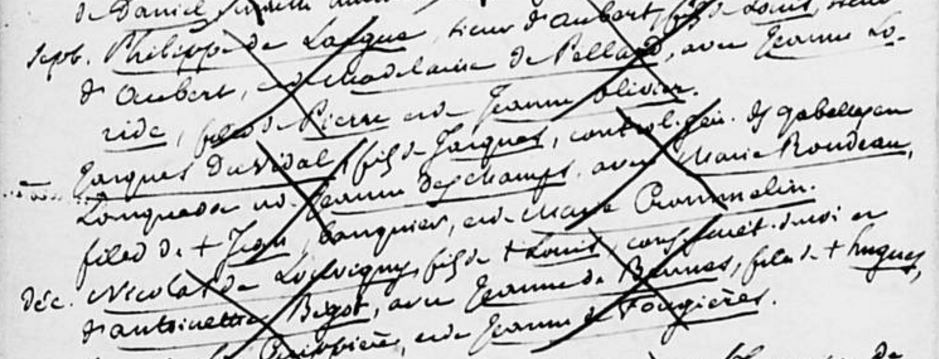 de Daniel
Sept. Philippe de Lasgue, sieur d'aubert, fils de Louis, sieur
d'Aubert, et de Madelaine de Pellard, avec Jeanne Lo-
ride, filed de Pierre et de Jeanne Olivier.
Jacques Du Vidal, fils de Jacques, control. gén. des gabelles en
Languedoc et de Jeanne Deschamps, avec Marie Rondeau,
filed de + Jean, banquier, et de Marie Crommelin.
déc. Nicolas de Louvigny, fils de + Louis, cons. secrét. du roi et
d'antoinette Bigot, avec Jeanne de Bennes, file de + hugues,
et de Jeanne de Fougières.